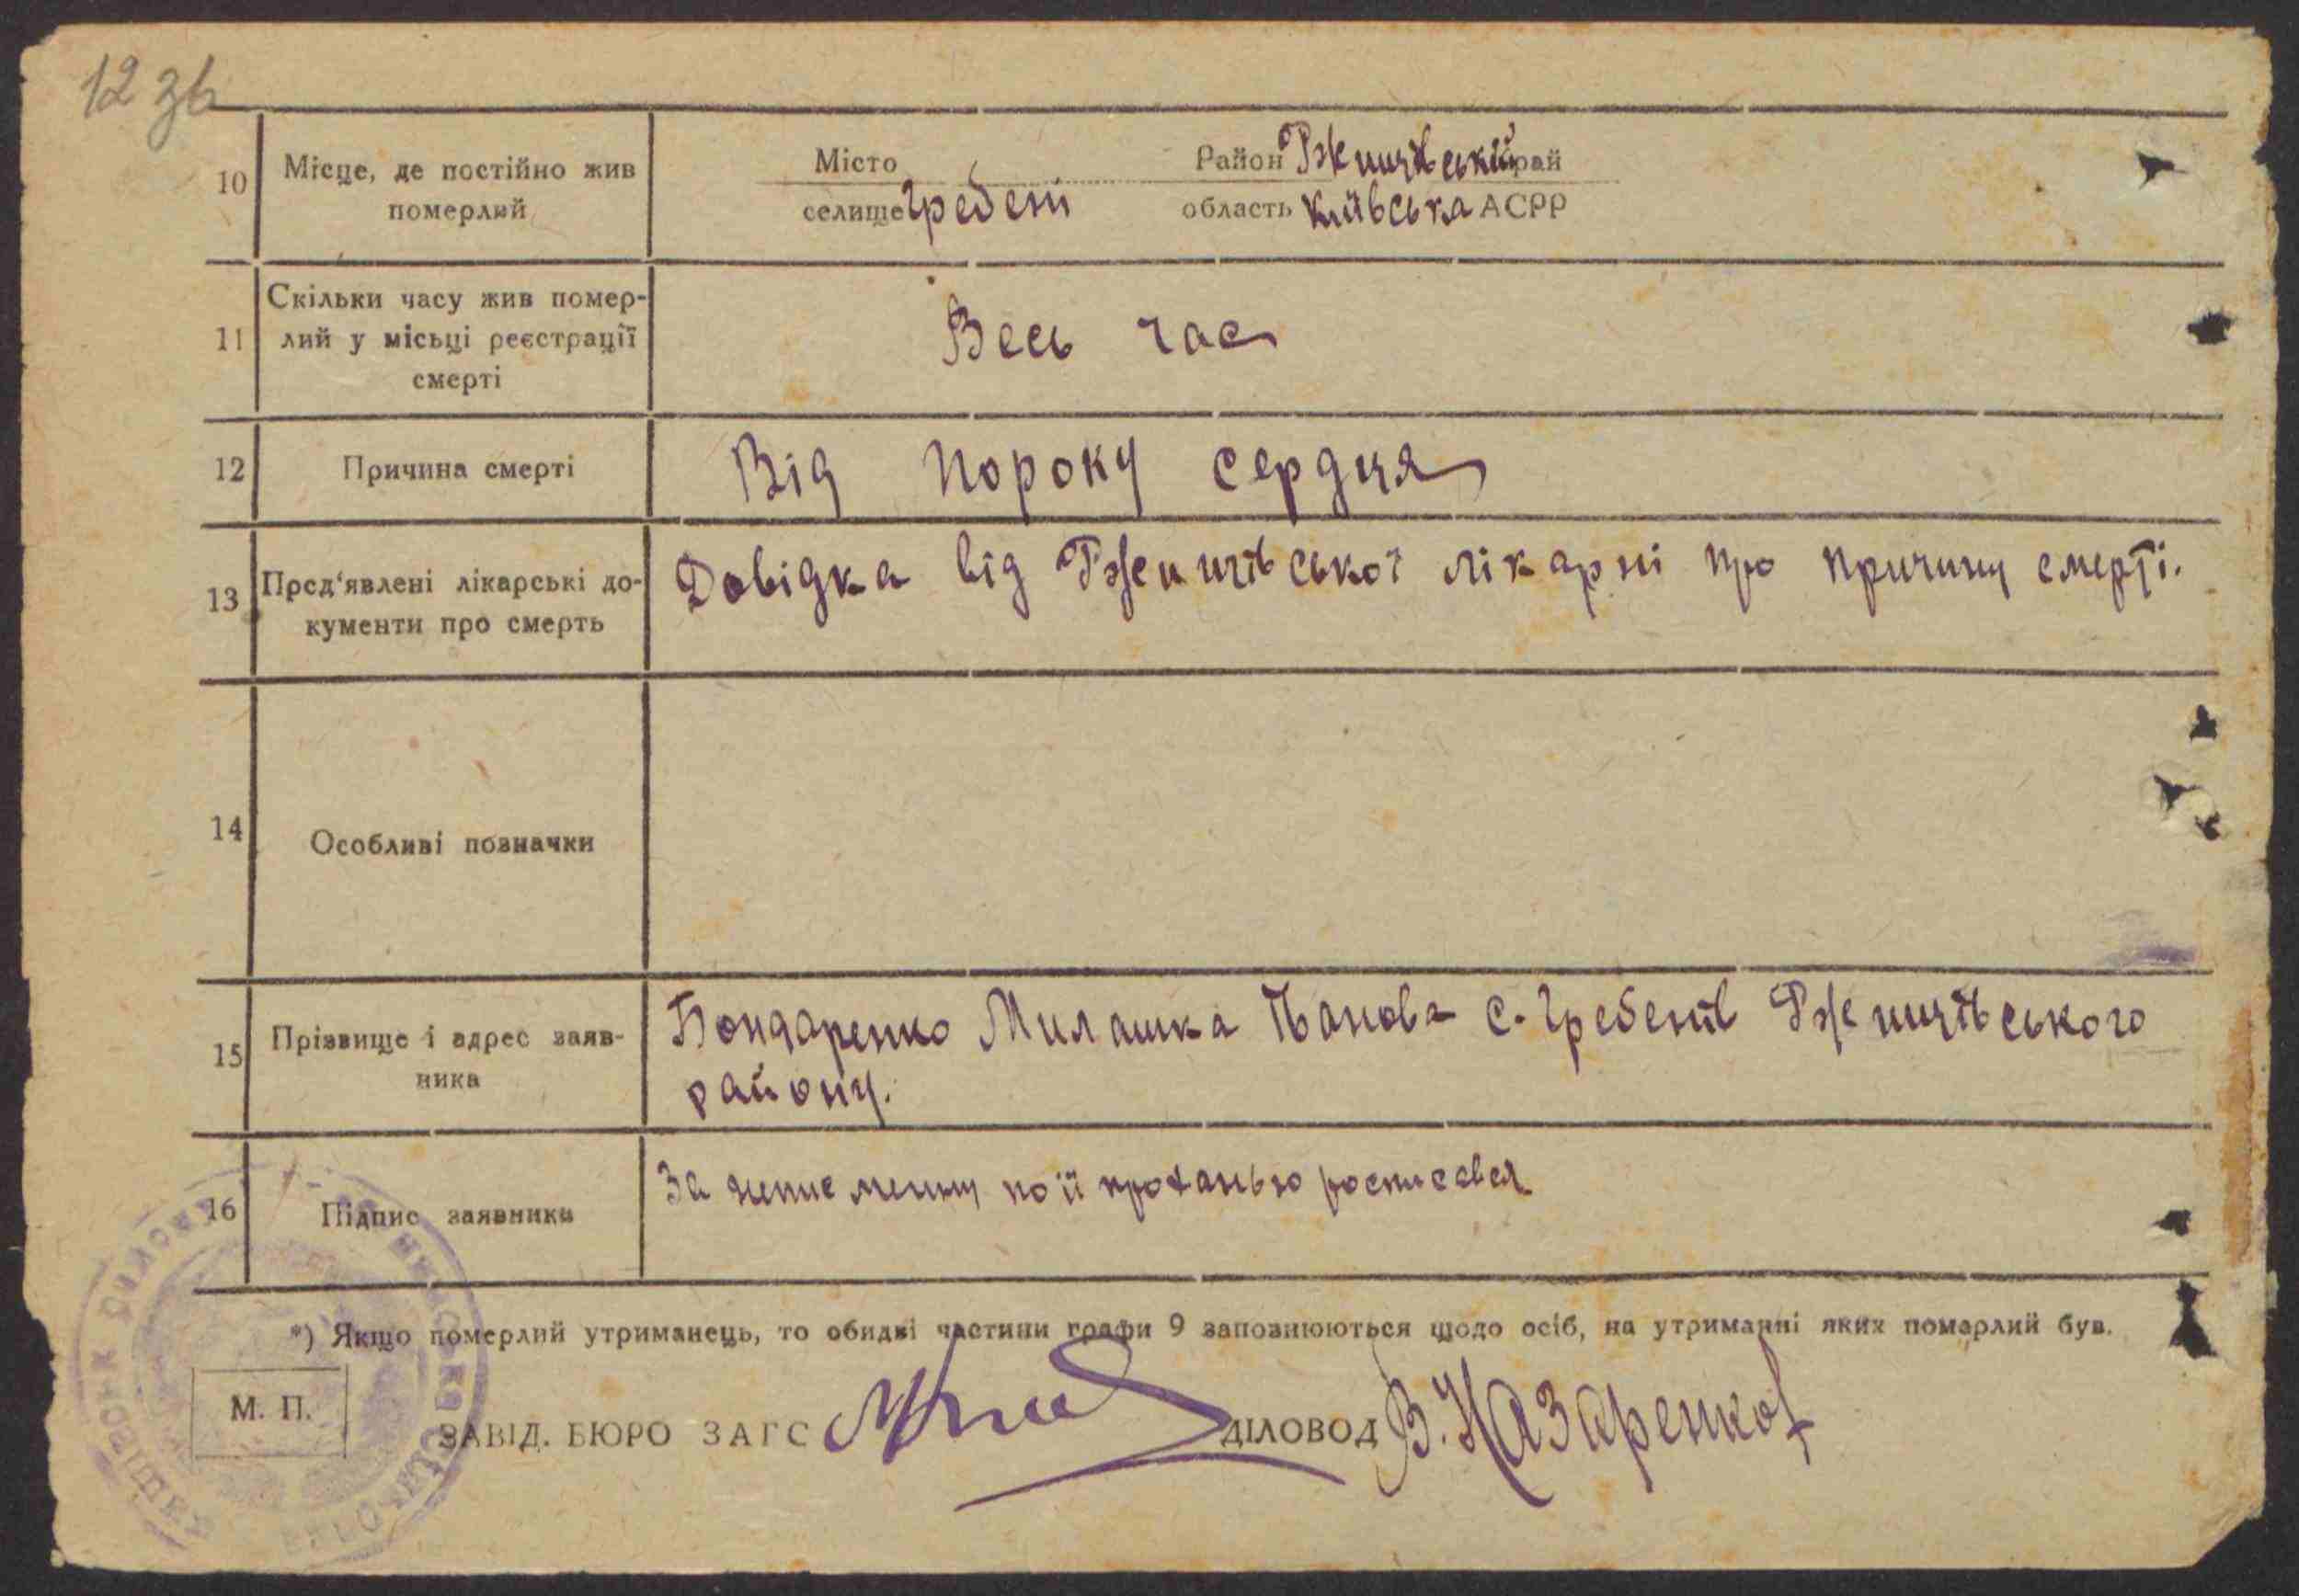 12 зв
10 Місце, де постійно жив померлий
Місто
селище Гребені
Район Ржищівський рай
область Київська АСРР
11 Скільки часу жив помер-
лий у місьці реєстрації
смерті
Весь час
12 Причина смерті
Від пороку сердця
13 Пред'явлені лікарські до-
кументи про смерть
Довідка від Ржищівської лікарні про причину смерті.
14 Особливі позначки
15 Прізвище і адрес заяв-
ника
Бондаренко Милашка Іванова с. Гребенів Ржищівського
району.
16 Підпис заявника
За неписменну по її проханью росписався
*) Якщо померлий утриманець, то обидві частини графи 9 заповнюються щодо осіб, на утриманні яких померлий був.
М. П.
ЗАВІД. БЮРО ЗАГС
ДІЛОВОД В. Назаренко